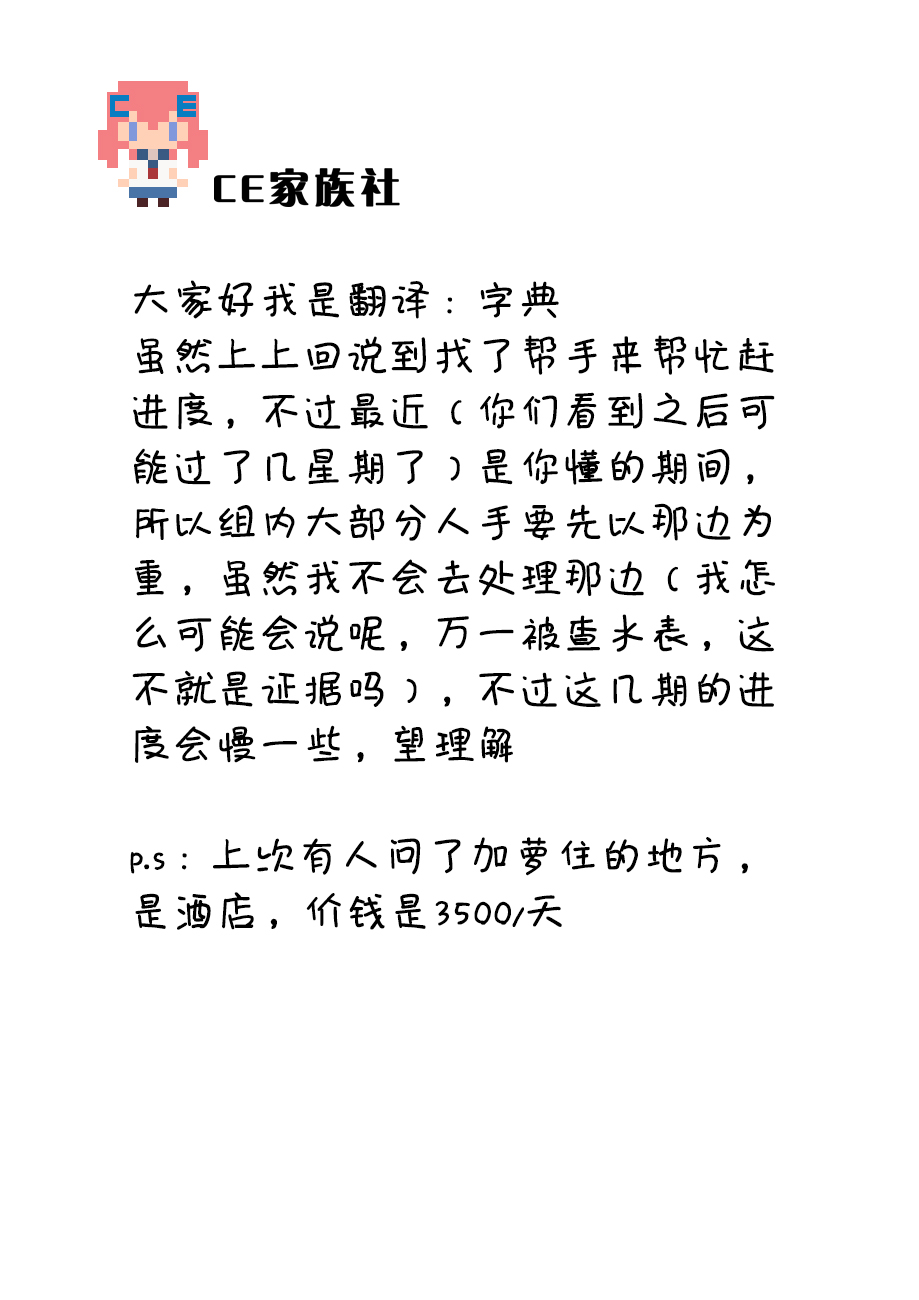 CE
CE家族社
大家好我是翻译：字典
虽然上上回说到找了帮手来帮忙赶
进度，不过最近（你们看到之后可
能过了几星期了）是你懂的期间，
所以组内大部分人手要先以那边为
重，虽然我不会去处理那边（我怎
么可能会说呢，万一被查水表，这
不就是证据吗），不过这几期的进
度会慢一些，望理解
p.s：上次有人问了加萝住的地方，
是酒店，价钱是3500/天